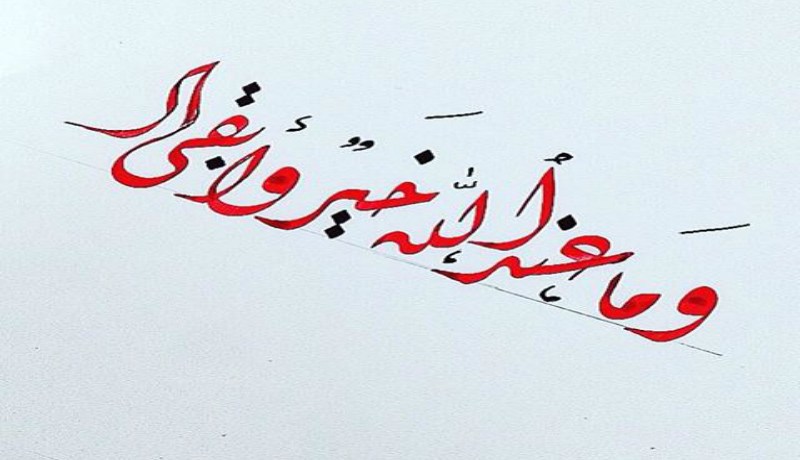 وَما عِندَ اللَّهِ خَيرٌ وَأَبقى